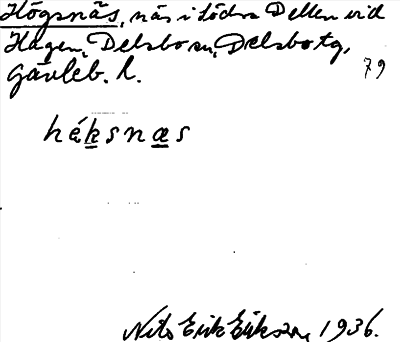 Högsnäs, näs i Södra Dellen vid
Hagen, Delsbo sn, Delsbo tg,
Gävleb. l.
79
håksnæs
Nils Erik Eriksson, 1936.